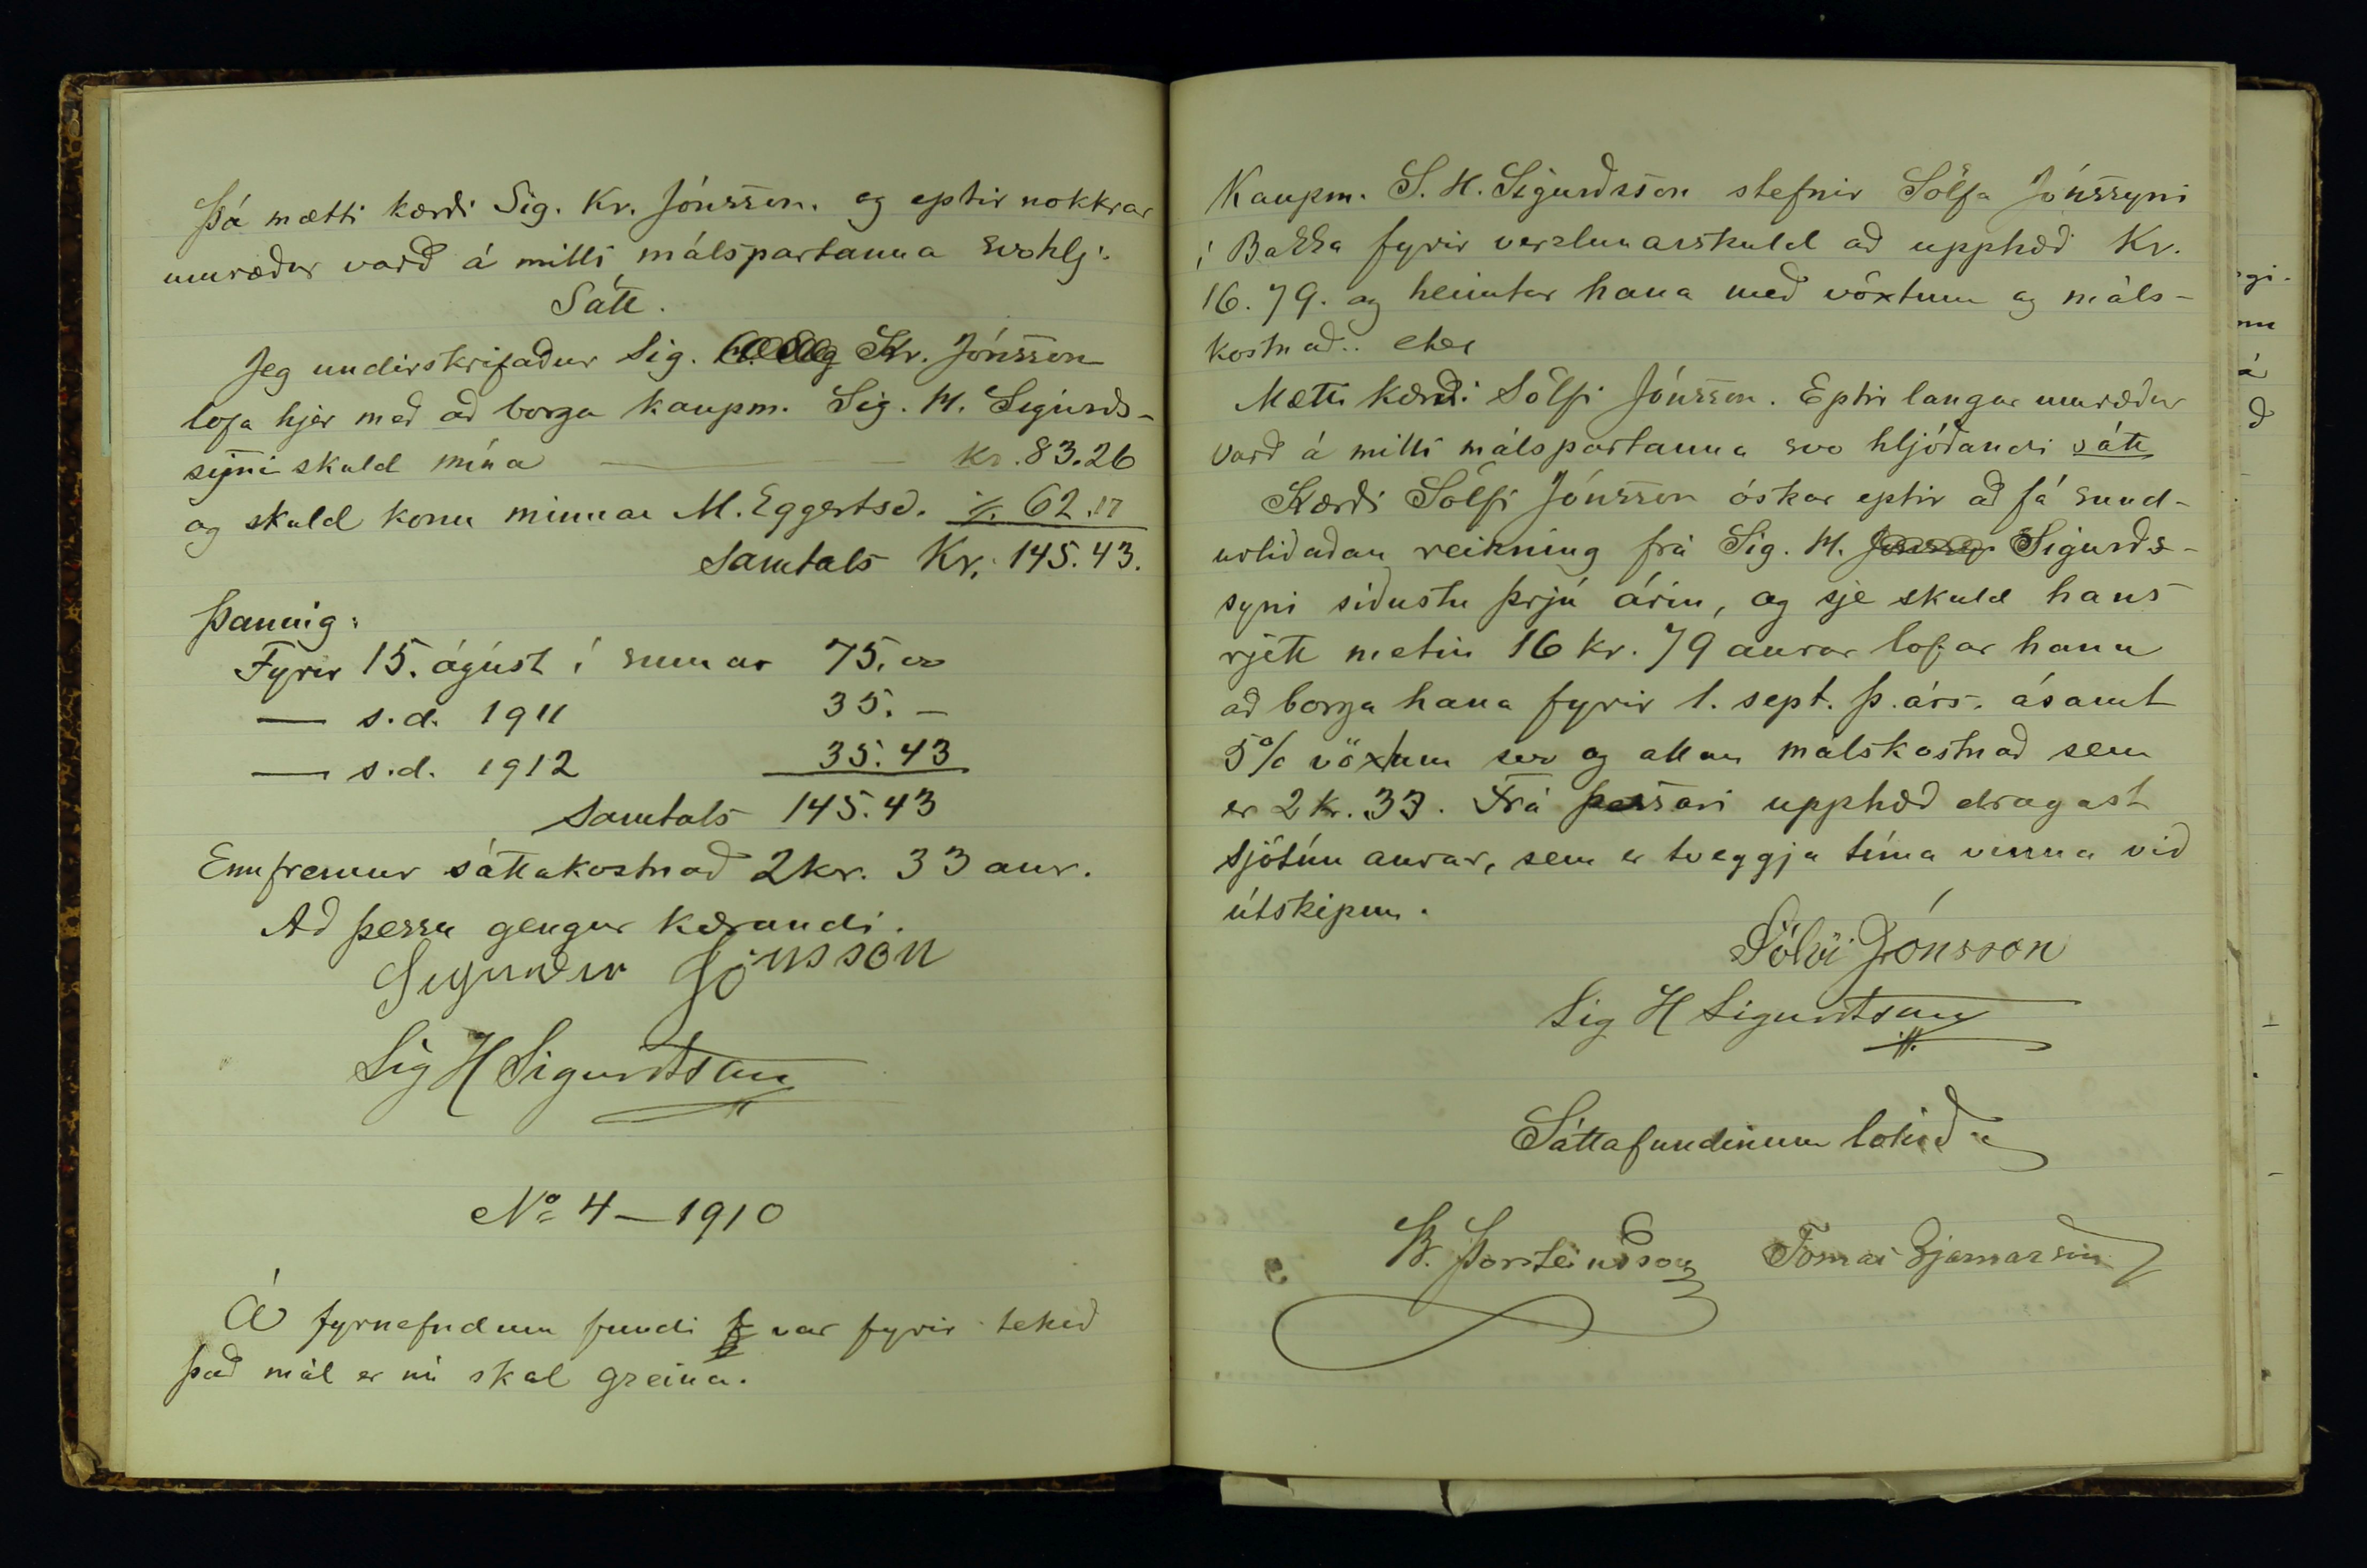 Þá mætti kærði Sig. Kr. Jónsson. og eptir nokkrar
umræður varð á milli málspartanna svohlj:
Sátt.
Jeg undirskrifaður Sig. Kr. Jónsson
lofa hjer með að borga kaupm. Sig. H. Sigurðs-
syni skuld mína — — kr. 83.26
og skuld konu minnar M. Eggertsd. 62.17
Samtals Kr. 145.43.
Þannig:
Fyrir 15. ágúst í sumar 75.00
— s.d. 1911 35. —
— s.d. 1912 35.43
Samtals 145.43
Ennfremur sáttakostnað 2 kr. 33 aur.
Að þessu gengur kærandi.
Sigurður Jónsson
Sig H Sigurdsson
No 4 — 1910
Á fyrnefndum fundi var fyrir tekið
það mál er nú skal greina.
Kaupm. S. H. Sigurðsson stefnir Sölfa Jónssyni
í Bakka fyrir verzlunarskuld að upphæð Kr.
16.79. og heimtar hana með vöxtum og máls-
kostnað..
Mætti kærði Sölfi Jónsson. Eptir langar umræður
varð á milli málspartanna svo hljóðandi sátt
Kærði Sölfi Jónsson óskar eptir að fá sund-
urliðaðan reikning frá Sig. H. Sigurðs-
syni síðustu þrjú árin, og sje skuld hans
rjett metin 16 kr. 79 aurar lofar hann
að borga hana fyrir 1. sept. þ. árs. ásamt
5% vöxtum svo og allan málskostnað sem
er 2 kr. 33. Frá þessari upphæð dragast
sjötíu aurar, sem er tveggja tíma vinna við
útskipun.
Sölvi Jónsson
Sig H Sigurdsson
Sáttafundinum lokið
B. Þorsteinsson Tómas Bjarnarson